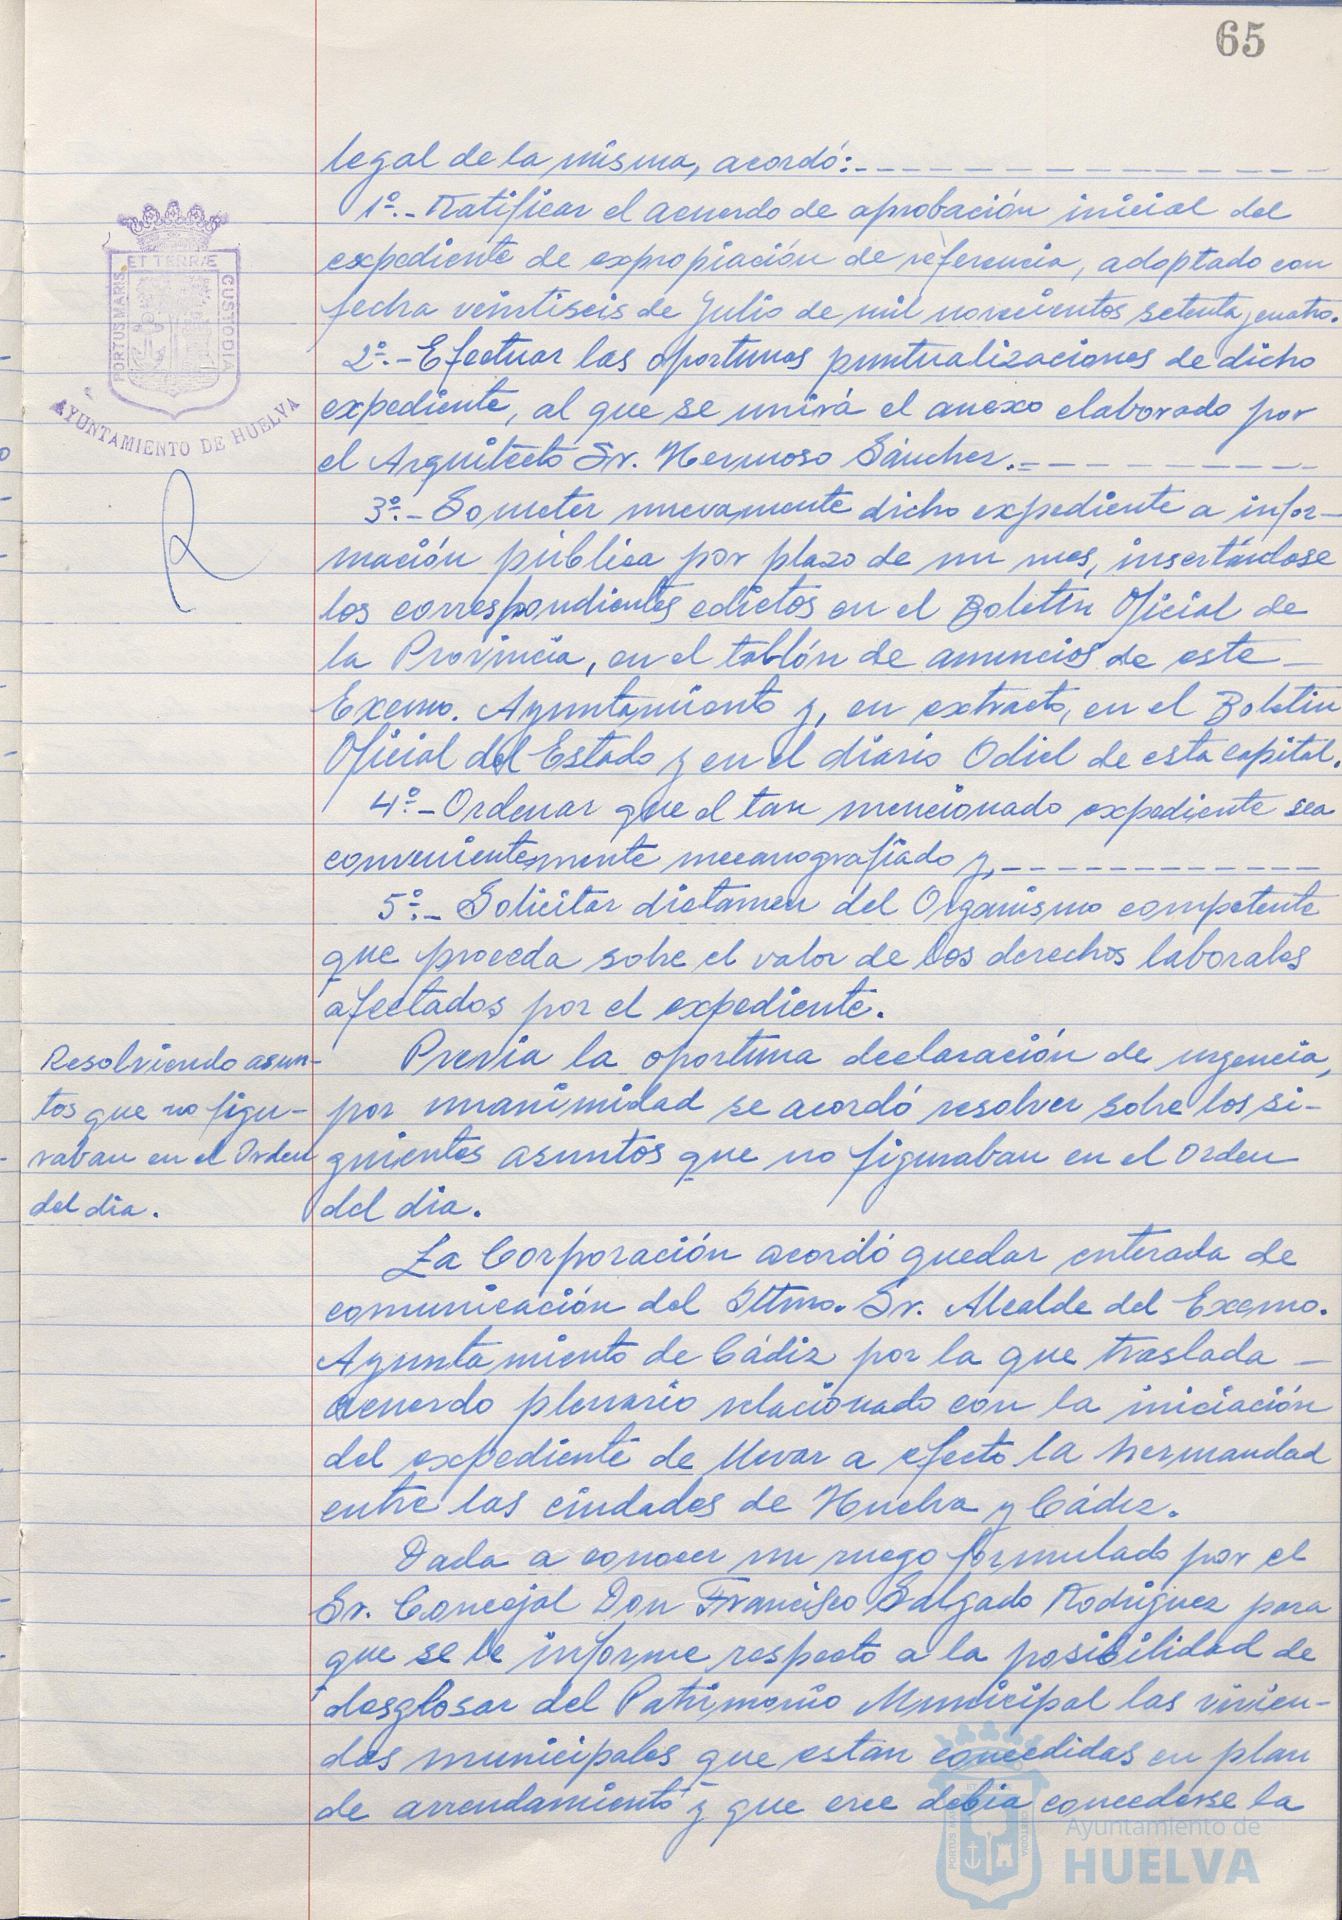 65
legal de la misma, acordó:
1º.- Ratificar el acuerdo de aprobación inicial del
expediente de expropiación de referencia, adoptado con
fecha veintiseis de Julio de mil novecientos setenta y cuatro.
2º.- Efectuar las oportunas puntualizaciones de dicho
expediente, al que se unirá el anexo elaborado por
el Arquitecto Sr. Hermoso Sánchez.=
3º.- Someter nuevamente dicho expediente a infor-
mación pública por plazo de un mes, insertándose
los correspondientes edictos en el Boletín Oficial de
la Provincia, en el tablón de anuncios de este
Excmo. Ayuntamiento y, en extracto, en el Boletin
Oficial del Estado y en el diario Odiel de esta capital.
4º.- Ordenar que el tan mencionado expediente sea
convenientemente mecanografiado y,
5º.- Solicitar dictamen del Organismo competente
que proceda sobre el valor de los derechos laborales
afectados por el expediente.
Resolviendo asun-
tos que no figu-
raban en el Orden
del dia.
Previa la oportuna declaración de urgencia,
por unanimidad se acordó resolver sobre los si-
guientes asuntos que no figuraban en el Orden
del dia.
La Corporación acordó quedar enterada de
comunicación del Iltmo. Sr. Alcalde del Excmo.
Ayuntamiento de Cádiz por la que traslada
acuerdo plenario relacionado con la iniciación
del expediente de llevar a efecto la hermandad
entre las ciudades de Huelva y Cádiz.
Dada a conocer un ruego formulado por el
Sr. Concejal Don Francisco Salgado Rodriguez para
que se le informe respecto a la posibilidad de
desglosar del Patrimonio Municipal las vivien-
das municipales que estan concedidas en plan
de arrendamiento y que cree debia concederse la
ET TERRÆ
PORTUS MARIS
CUSTODIA
AYUNTAMIENTO DE HUELVA
Ayuntamiento de
HUELVA